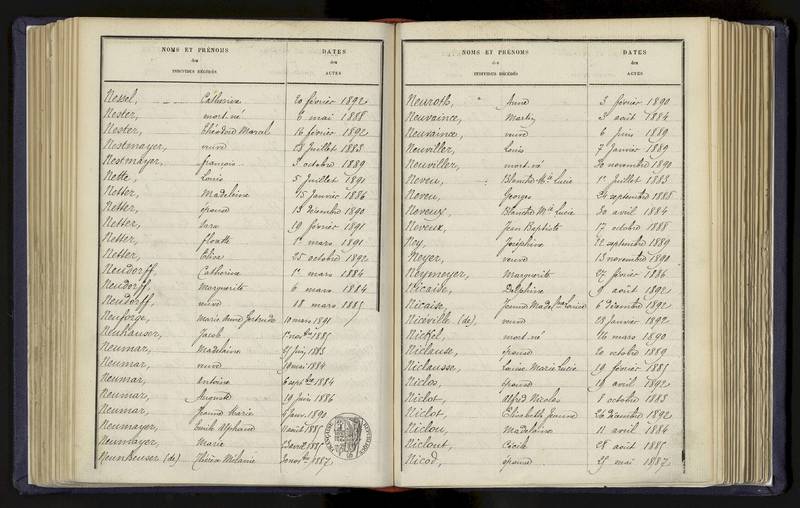 NOMS ET PRÉNOMS DATES
des des
INDIVIDUS DÉCÉDÉS ACTES
Nessel, Catherine 20 février 1892
Nester, mort-né 6 mai 1888
Nester, Théodore Marcel 16 février 1892
Nestmayer, veuve 28 Juillet 1883
Nestmayer, françois 5 octobre 1889
Nette, Louis 5 Juillet 1891
Netter, Madeleine 15 Janvier 1886
Netter, épouse 13 décembre 1890
Netter, Sara 19 février 1891
Netter, flouette 1er mars 1891
Netter, Elise 25 octobre 1892
Neudorff, Catherine 1er mars 1884
Neudorff, Marguerite 6 mars 1884
Neudorff, veuve 18 mars 1885
Neuforge, Marie Anne Gertrude 10 mars 1891
Neuhauser, Jacob 1er novbre 1885
Neumar, Madeleine Juin 1883
Neumar, veuve 10 mai 1884
Neumar, Antoine 6 septbre 1884
Neumar, Auguste 19 Juin 1886
Neumar, Jeanne Marie Janv. 1890
Neumayer, Emile Alphand août 1885
Neumayer, Marie 23 avril 1885
Neunheuser (de) Thérèse Mélanie 30 novbre 1887
NOMS ET PRÉNOMS DATES
des des
INDIVIDUS DÉCÉDÉS ACTES
Neuroth, Anne 3 février 1890
Neuvaince, Martin 3 août 1884
Neuvaince, veuve 6 juin 1889
Neuviller, Louis 7 Janvier 1889
Neuviller, mort-né 30 novembre 1890
Neveu, Blanche Mie Lucie 1er Juillet 1883
Neveu, Georges 24 septembre 1885
Neveux, Blanche Mie Lucie 30 avril 1884
Neveux, Jean Baptiste 17 octobre 1888
Ney, Joséphine 22 septembre 1889
Neyer, veuve 13 novembre 1890
Neymeyer, Marguerite 27 février 1886
Nicaise, Delphine 9 août 1892
Nicaise, Jeanne Made Louise 6 décembre 1892
Nicéville (de), veuve 28 Janvier 1892
Nickel, mort-né 20 mars 1890
Niclause, épouse 20 octobre 1889
Niclausse, Louise Marie Lucie 19 février 1885
Niclos, épouse 19 avril 1892
Niclot, Alfred Nicolas 8 octobre 1883
Niclot, Elisabeth Jeanne 26 décembre 1892
Niclou, Madeleine 11 avril 1884
Niclout, Cécile 28 août 1885
Nicod, épouse 25 mai 1887